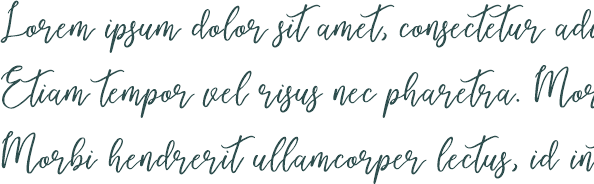 Lorem ipsum dolor sit amet, consectetur adi
Etiam tempor vel risus nec pharetra. Mor
Morbi hendrerit ullamcorper lectus, id in